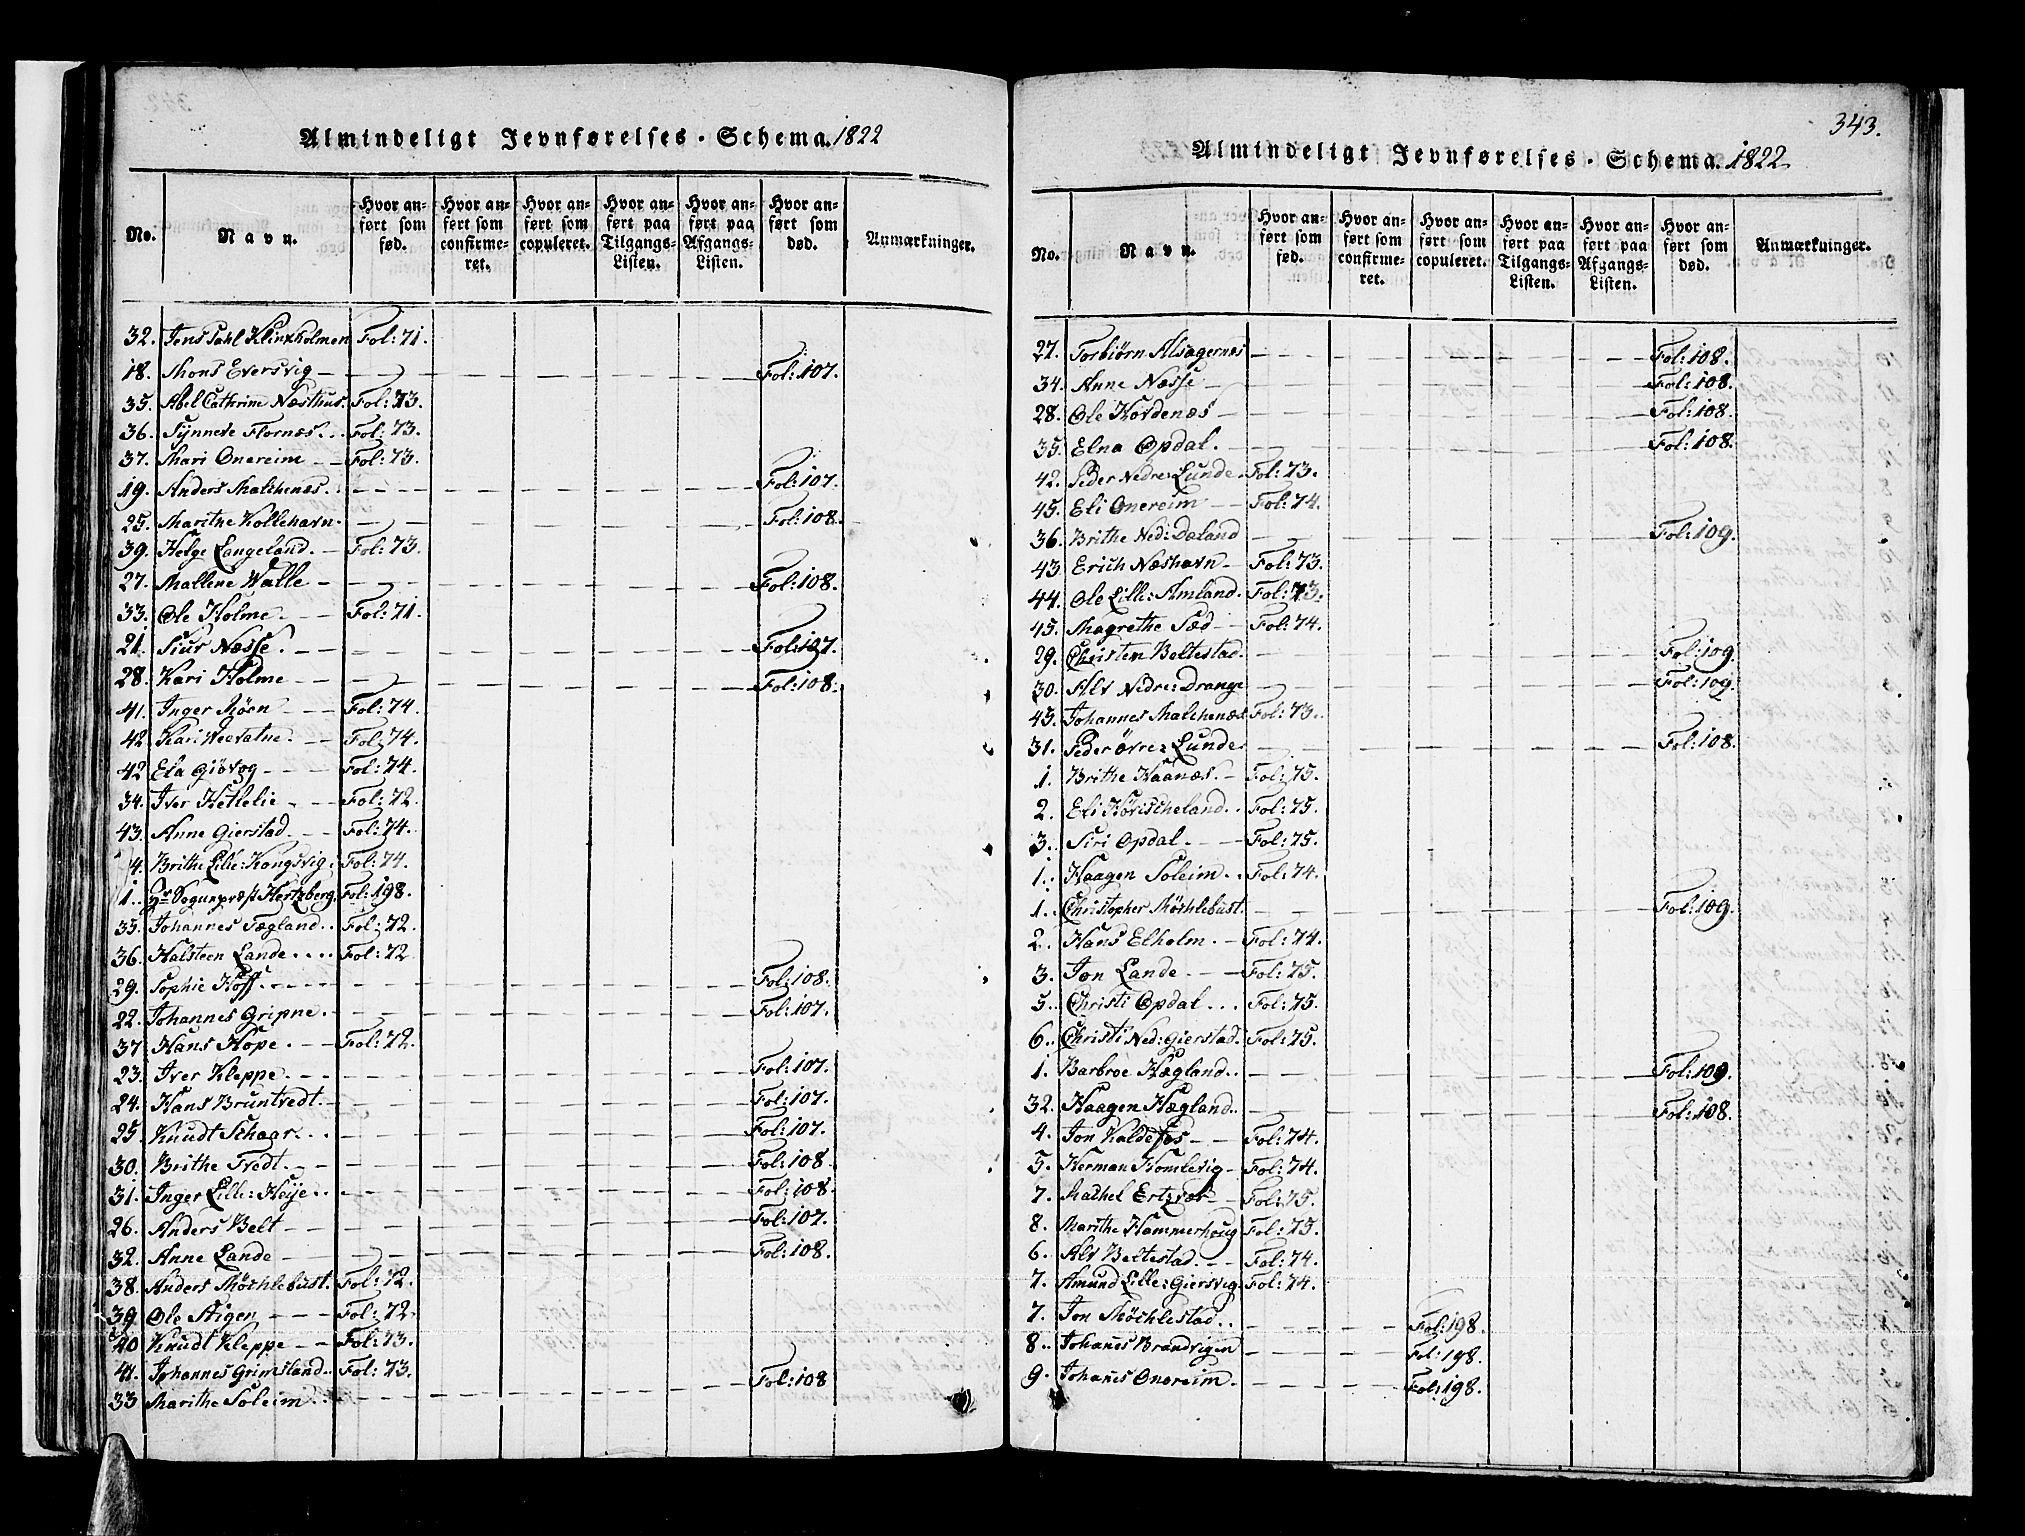 Almindeligt Jevnførelses-Schema. 1822
No. Navn. Hvor anført som fød. Hvor anført som confirmeret. Hvor anført som copuleret. Hvor anført paa Tilgangs-Listen. Hvor anført paa Afgangs-Listen. Hvor anført som død. Anmærkninger.
32. Jens Dahl Klinkholmen Fol: 71.
18. Mons Eversvig Fol: 107.
35. Abel Cathrine Næsthus. Fol: 73.
36. Synneve Flornæs. Fol: 73.
37. Mari Onereim Fol: 73.
19. Anders Malchenæs. Fol: 107.
25. Marithe Kollehavn. Fol: 108.
39. Helge Langeland. Fol: 73.
27. Mallene Walle Fol: 108.
33. Ole Holme. Fol: 71.
21. Siur Næsse. Fol: 107.
28. Kari Holme Fol: 108.
41. Inger Møen Fol: 74.
42 Kari Weevatne. Fol: 74.
42 Ela Giøvog Fol: 74.
34. Iver Ketlelie Fol: 72.
43. Anne Gierstad Fol: 74.
4. Brithe Lille: Kongsvig: Fol: 74.
1. Hr Sognepræst Hertzberg. Fol: 198.
35. Johannes Tægland. Fol: 72.
36. Halsteen Lande Fol: 72
29. Sophie Hoff. Fol: 108.
22. Johannes Gripne. Fol: 107.
37. Hans Hope. Fol: 72.
23. Iver Kleppe Fol: 107.
24. Hans Bruntvedt. Fol: 107.
25. Knudt Schaar. Fol: 107.
30. Brithe Tvedt. Fol: 108.
31. Inger Lille: Høye. Fol: 108.
26. Anders Belt Fol: 107.
32. Anne Lande Fol: 108.
38. Anders Møchlebust. Fol: 72.
39 Ole Stigen Fol: 72.
40 Knudt Kleppe Fol: 73.
41. Johannes Grimsland. Fol: 73.
33 Marithe Soleim Fol: 108
343.
Almindeligt Jevnførelses-Schema. 1822
No. Navn. Hvor anført som fød. Hvor anført som confirmeret. Hvor anført som copuleret. Hvor anført paa Tilgangs-Listen. Hvor anført paa Afgangs-Listen. Hvor anført som død. Anmærkninger.
27. Torbiørn Alsagernæs Fol: 108.
34. Anne Næsse Fol: 108.
28. Ole Hovdenæs Fol: 108.
35. Elna Opdal. Fol: 108.
42. Peder Nedre: Lunde. Fol: 73.
45. Eli Onereim Fol: 74.
36. Brithe Ned: Dæland Fol: 109.
43 Erich Næshavn Fol: 73.
44. Ole Lille: Amland. Fol: 73.
45. Magrethe Sæd Fol: 74.
29. Christen Beltestad. Fol: 109.
30. Alv Nedre: Drange Fol: 109.
45. Johannes Malchenæs Fol: 73.
31. Peder øvre: Lunde. Fol: 108.
1. Brithe Haanæs. Fol: 75.
2. Eli Hovischeland. Fol: 75.
3. Siri Opdal. Fol: 75.
1. Haagen Soleim. Fol: 74.
1. Christopher Møchlebust. Fol: 109.
2. Hans Elholm. Fol: 74.
3. Jon Lande. Fol: 75.
5. Christi Opdal. Fol: 75.
6. Christi Ned: Gierstad. Fol: 75.
1. Barbroe Hægland. Fol: 109.
32. Haagen Hægland. Fol: 108.
4. Jon Kaldefos Fol: 74.
5. Herman Homlevig Fol: 74.
7. Rachel Ertzvær Fol: 75.
8. Marithe Hammerhoug Fol: 75.
6. Alv Beltestad. Fol: 74.
7. Amund Lille: Giersvig. Fol: 74.
7. Jon Møchlestad. Fol: 198.
8. Johañes Brandvigen Fol: 198.
9. Johañes Onereim. Fol: 198.